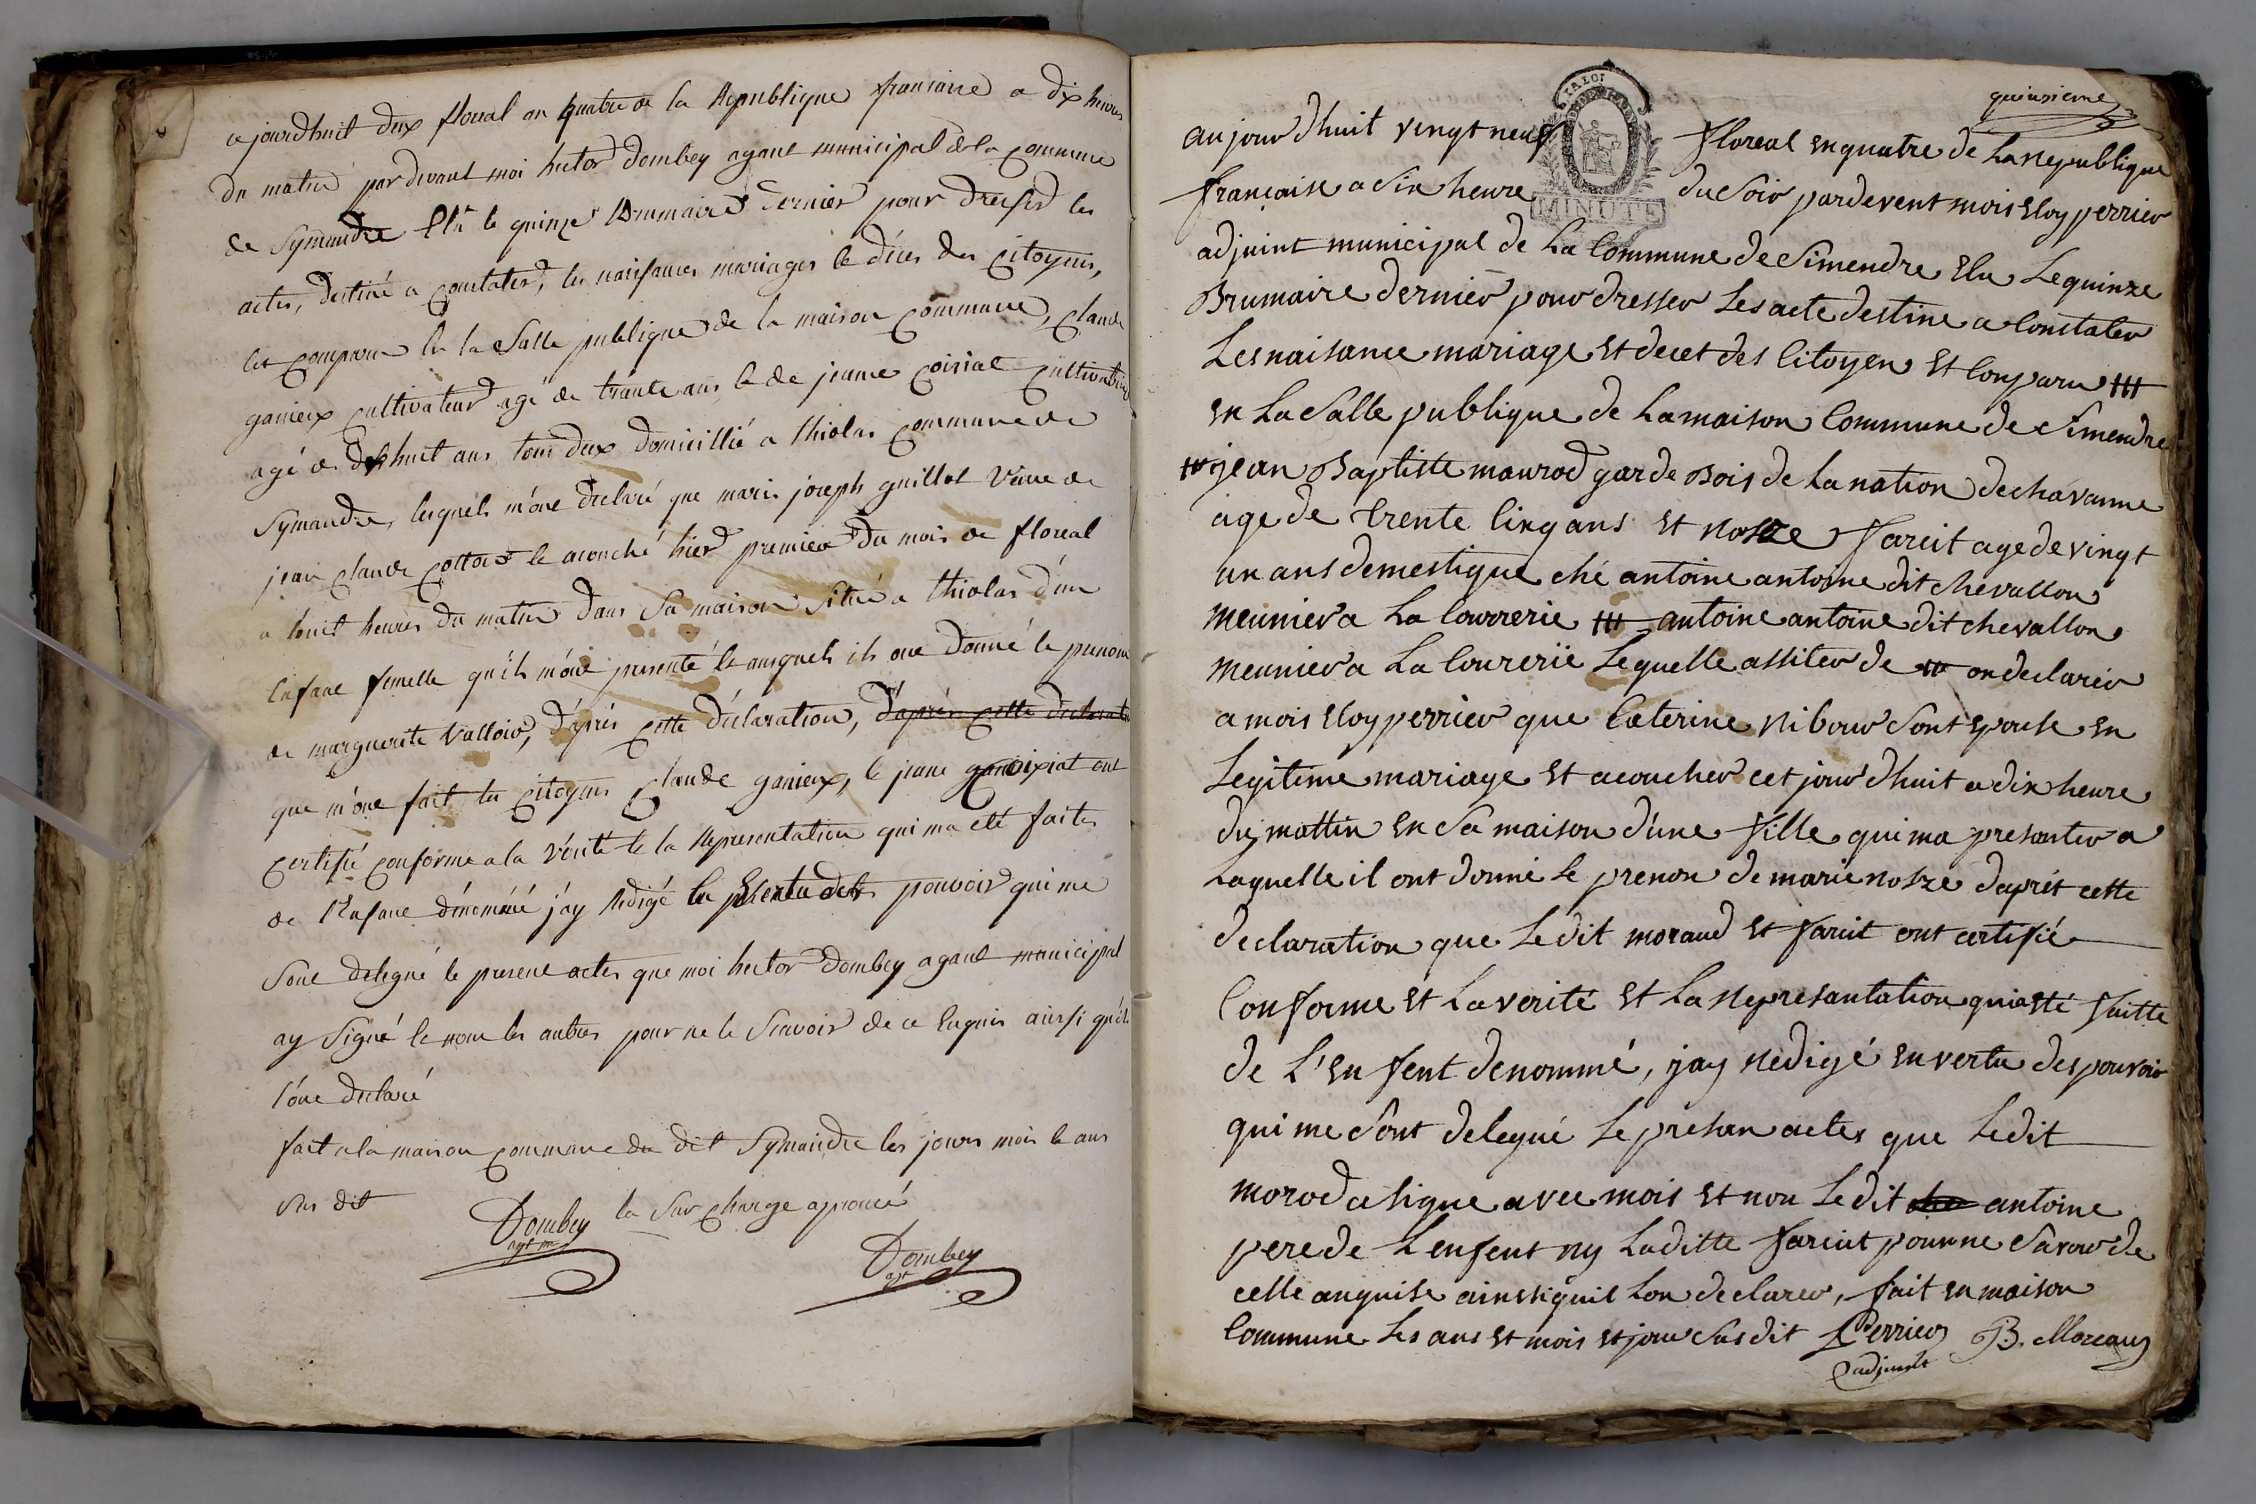 ajourdhuit deux floreal an quatre de la Republique francaise a dix heures
du matin par devant moi hector Dombey agant municipal de la commune
de Symandre Elu le quinze Brumaire dernier pour dresser les
actes, destiné a constater, les naissances mariages le déces des citoyens,
est comparu En la Salle publique de la maison commune, claude
ganieux cultivateur agé de trante ans le de jeanne coissiat cultivatrice
agé de dixhuit ans tous deux domicillié a thiolas commune de
Symandre, lesquels m'ont declaré que marie joseph guillot veuve de
jean claude cottois le acouché hier premier du mois de floreal
a huit heures du matin dans Sa maison située a thiolas d'un
Enfant femelle qu'ils m'ont presenté le auquels ils ont donné le prenom
de marguerite Vallois, d'aprés cette déclaration, d'aprés cette declaration
que m'ont fait les citoyens claude ganieux, le jeanne coixiat ont
certifié conforme a la vérité le la Representation qui ma été faites
de l'Enfant dénommé j'ay Redigé En Vertu des pouvoir qui me
Sont delegué le present actes que moi hector Dombey agant municipal
ay Signé le non les autres pour ne le Scavoir de ce Enquis ainsi qu'ils
l'ont declaré
fait a la maison commune du dit Symandre les jours mois le ans
Sus dit
la Sur charge aprouvé
Dombey
agt m
Dombey
agt
quinsieme
aujourdhuit vingt neuf floreal en quatre de La Republique
française a Six heure du Soir pardevent mois Eloy perrier
MINUTE
adjoint municipal de La Commune de Simendre Elu Le quinze
Brumaire dernier pour dresser Les acte destine a Constater
Les naisance mariage Et decet des Citoyen Et Conparu
En La Salle publique de La maison Commune de Simendre
jean Baptiste maurod garde Bois de La nation de chavanne
age de trente Cinq ans Et Rosze farcit age de vingt
un ans demestique ché antoine antoine dit chevallon
meunier a La Courrerie antoine antoine dit chevallon
meunier a La Courerie Lequelle assiter de on declarer
a mois Eloy perrier que Caterine Ribour Sont Epouse En
Legitime mariage Et acoucher cet jour d'huit a dix heure
du mattin En Sa maison d'une fille qui ma presanter a
Laquelle il ont donné Le prenon de marie Rosze daprét cette
declaration que Le dit moraud Et farcit ont certifié
Conforme Et La verité Et La Represantation qui a Eté faitte
de L'Enfent denommé, jay Redigé En vertu des pouvoir
qui me Sont delegué Le presan actes que Le dit
morod a Signe avec mois Et non Le dit antoine
pere de L'enfent ny Laditte farcit pour ne Savoir de
celle anquise ainssi quil Lon declarer, fait En maison
Commune Les ans Et mois Et jour Sus dit Perrier B. Moraud
adjoint